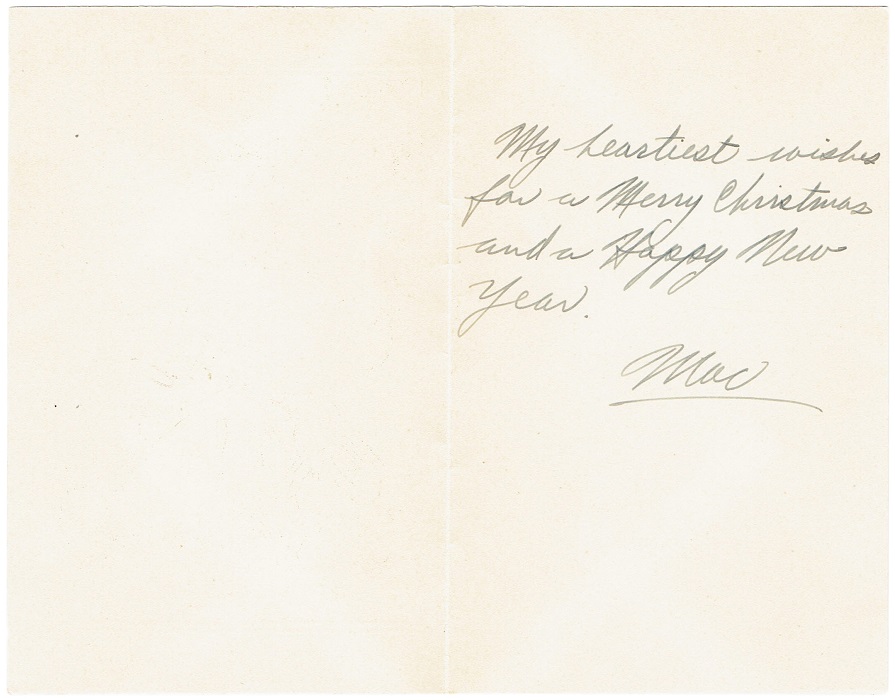 My heartiest wishes
for a Merry Christmas
and a Happy New
Year.
Mac